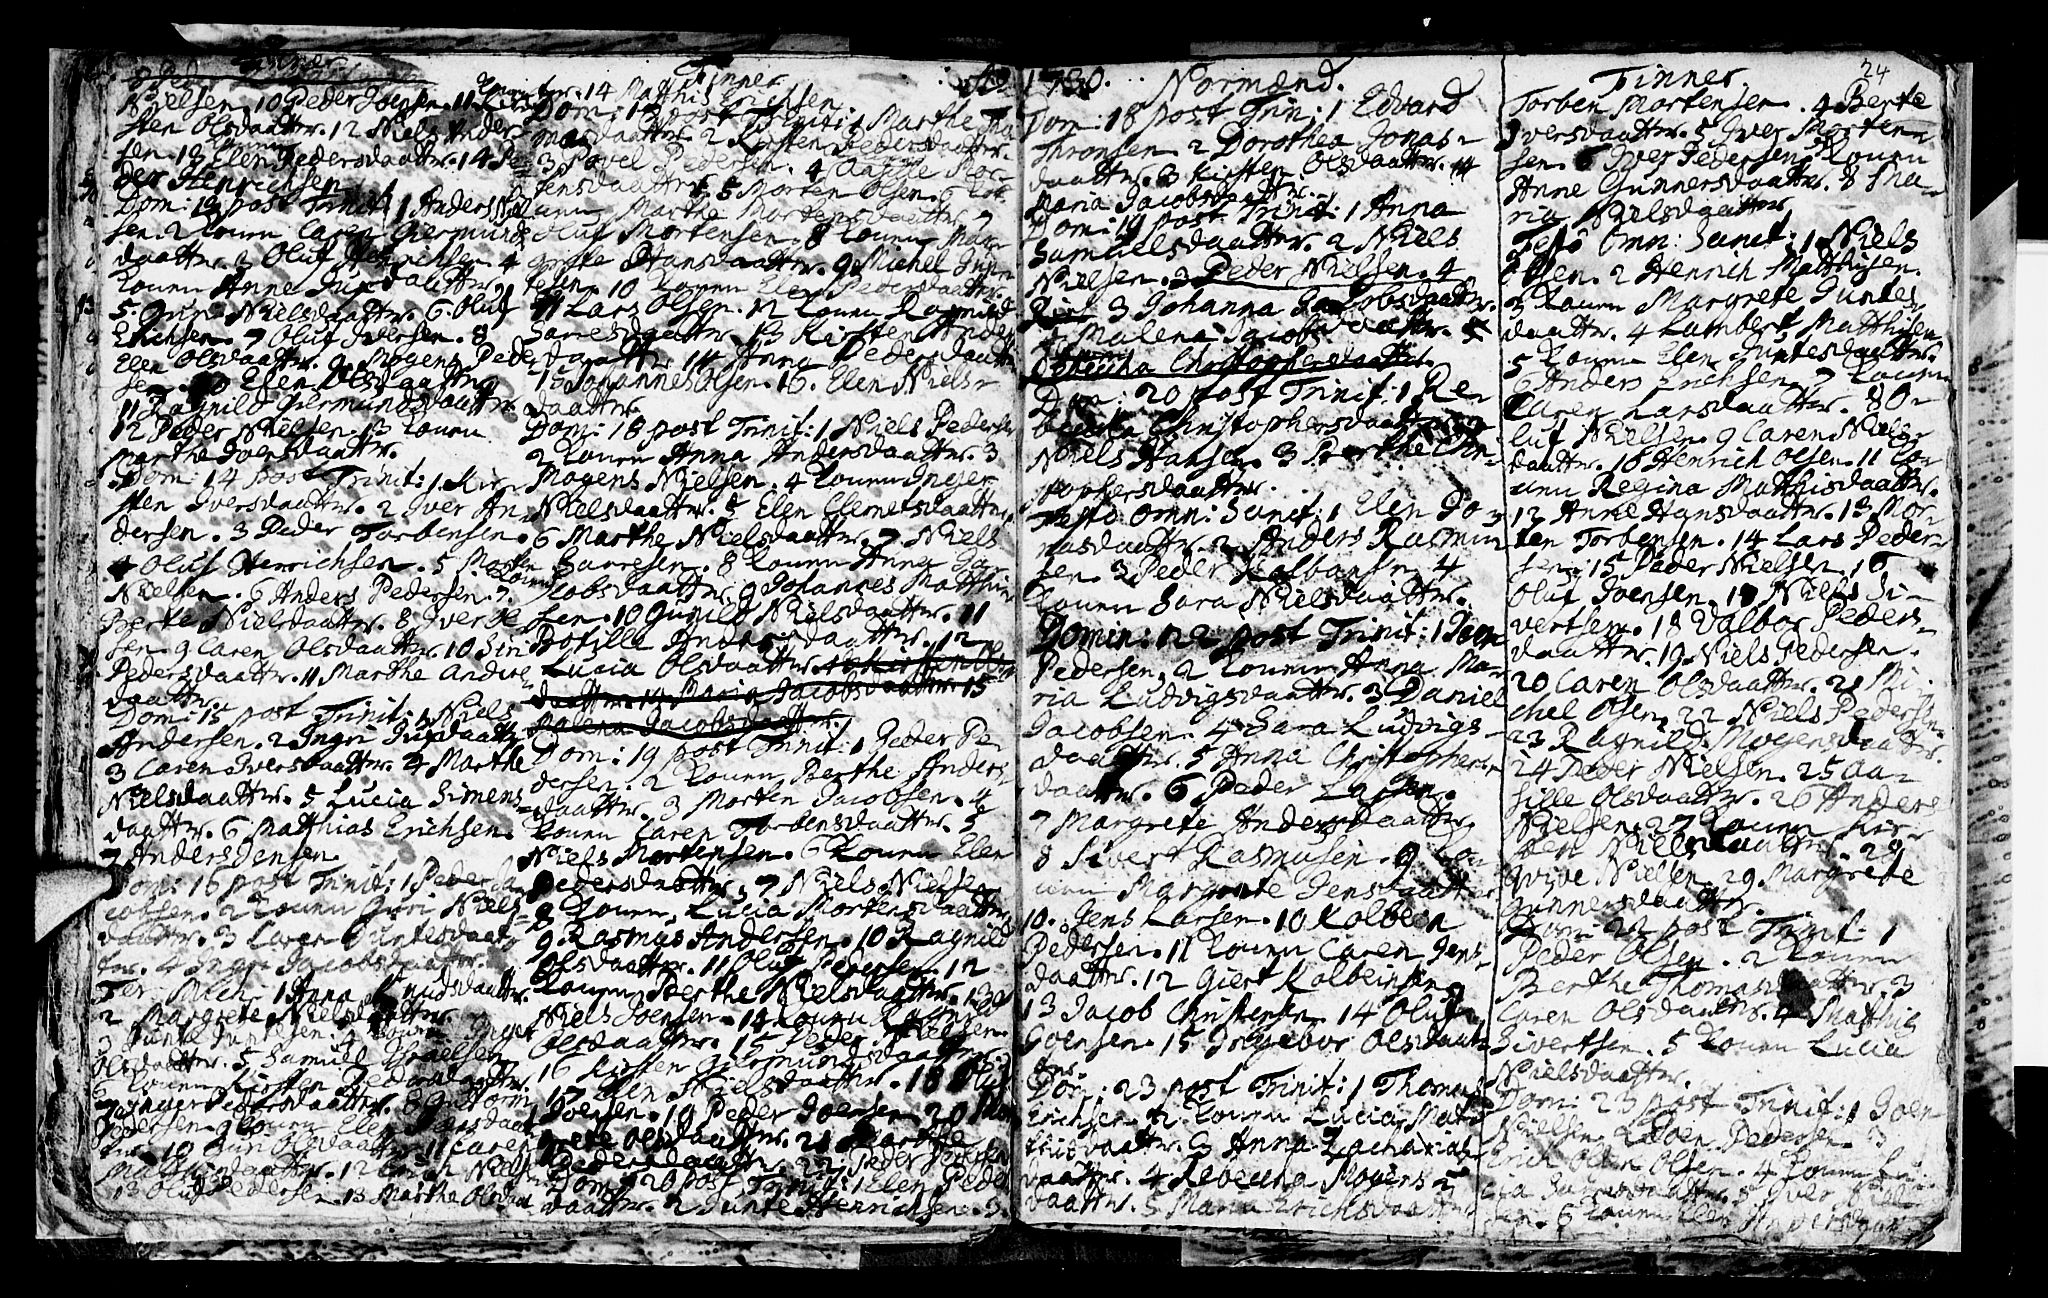 Finner
Nielsen. 10 Peder Joensen. 11 Kir-
sten Olsdaatter. 12 Niels Ander-
sen. 13 Elen Pedersdaatter. 14 Pe-
der Henrichsen
Dom: 13 post Trinit: 1 Anders Niel-
sen. 2 Konen Caren Giermunds-
daatter. 3 Oluf Henrichsen. 4
Konen Anne
5. Nielsdaatter. 6. Oluf
Erichsen. 7 Oluf Iversen. 8
Elen Olsdaatter. 9 Mogens Peder-
sen. 10 Elen Olsdaatter
11 Ragnild Giermundsdaatter.
12 Peder Nielsen. 13 Konen
Marthe Iversdaatter.
Dom: 14 post Trinit: 1 Kir-
sten Iversdaatter. 2 Iver An-
dersen. 3 Peder Torbensen.
4 Oluf Henrichsen. 5 Morten
Nielsen. 6 Anders Pedersen. 7. Konen
Berte Nielsdaatter. 8 Iver
sen. 9 Caren Olsdaatter. 10 Siri
Pedersdaatter. 11 Marthe Andre-
daatter.
Dom: 15 post Trinit: 1 Niels
Andersen. 2 Ingri
3 Caren Iversdaatter. 4 Marthe
Nielsdaatter. 5 Lucia Simens-
daatter. 6 Matthias Erichsen.
7 Anders Jensen
Dom: 16 post Trinit: 1 Peder Ja-
cobsen. 2 Konen Guri Niels-
daatter. 3 Caren Juntesdaat-
ter. 4 Ingri Jacobsdaatter.
Fer: Mich: 1 Anna Knudsdaatter.
2 Margrete Nielsdaatter
3 Junte Juntesen. 4 Konen Inger
Olsdaatter. 5 Samuel Israelsen
6 Konen Kirsten Pedersdaatter.
7 Inger Pedersdaatter. 8 Guttorm
Pedersen. 9 Konen Elen Larsdaat-
ter. 10 Guri Olsdaatter. 11 Caren
daatter. 12 Erich Nielsen
13 Oluf Pedersen 13 Marthe Olsdaat
Finner
14 Matthis Erichsen.
Dom: 17 post Trinit: 1 Marthe Tho-
masdaatter. 2 Kirsten Pedersdaatter.
3 Povel Pedersen. 4 Anne Mor-
tensdaatter. 5 Morten Olsen. 6 Ko-
nen Marthe Mortensdaatter. 7
Oluf Mortensen. 8 Konen Mar-
grete Hansdaatter. 9 Michel
tesen. 10 Konen Elen Pedersdaatter
11 Lars Olsen. 12 Konen Ragnild
Sarresdaatter. 13 Kirsten Anders
daatter 14 Anna Pedersdaatter
15 Johannes Olsen. 16. Elen Niels-
daatter.
Dom: 18 post Trinit: 1 Niels Pedersen
2 Konen Anna Andersdaatter. 3
Mogens Nielsen. 4 Konen Inger
Nielsdaatter. 5 Elen Clemetsdaatter
6 Marthe Nielsdaatter. 7 Niels
Sarresen. 8 Konen Anna Ja-
cobsdaatter. 9 Johannes Matthis-
sen. 10 Gunild Nielsdaatter. 11
Botille Andersdaatter. 12
Lucia Olsdaatter. 13 Kirsten Ols-
daatter 14 Maria Jacobsdaatter 15
Malena Jacobsdaatter.
Dom: 19 post Trinit: 1 Peder Pe-
dersen. 2 Konen Berthe Anders
daatter. 3 Morten Jacobsen. 4
Konen Caren Torbensdaatter. 5
Niels Mortensen. 6 Konen Elen
Pedersdaatter. 7 Niels Nielsen
8 Konen Lucia Mortensdaatter
9. Rasmus Andersen. 10 Ragnild
Olsdaatter. 11 Oluf Pedersen. 12
Konen Berthe Nielsdaatter. 13
Niels Joensen. 14 Konen Ragnild
Olsdaatter. 15 Peder Nielsen.
16 Kirsten Giermundsdaatter.
17 Elen Nielsdaatter. 18 Oluf
Joensen. 19 Peder Joensen. 20 Mar-
grete Olsdaatter. 21 Marthe
Pedersdaatter. 22 Peder Iversen
Dom: 20 post Trinit: 1 Elen Peders
daatter. 2 Junte Henrichsen. 3.
1730. Normænd.
Dom: 18 post Trin: 1 Edvard
Thronsen. 2 Dorothea Jonas-
daatter. 3 Kirsten Olsdaatter. 4
Maria Jacobsdaatter.
Dom: 19 post Trinit: 1 Anna
Samuelsdaatter. 2 Niels
Nielsen. 3 Peder Nielsen. 4
3 Johanna Jacobsdaatter.
4 Malena Jacobsdaatter. 5
Rebecka Christophersdaatter.
Dom: 20 post Trinit: 1 Re-
becka Christophersdaatter. 2
Niels Hansen. 3 Berthe Chri-
stophersdaatter.
Festo Omn: Sanct: 1 Elen Jo-
nasdaatter. 2 Anders Rasmus-
sen. 3 Peder Kolbensen 4
Konen Sara Nielsdaatter.
Domin: 22 post Trinit: 1 Joen
Pedersen. 2 Konen Anna Ma-
ria Ludvigsdaatter. 3 Daniel
Jacobsen. 4 Sara Ludvigs-
daatter. 5 Anna Christophers-
daatter. 6 Peder Larsen.
7 Margrete Andersdaatter
8 Sivert Rasmusen. 9 Ko-
nen Margrete Jensdaatter
10. Jens Larsen. 10 Kolbeen
Pedersen. 11 Konen Caren Jens-
daatter. 12 Giert Kolbeinsen
13 Jacob Christensen. 14 Oluf
Joensen. 15 Ingebor Olsdaat-
ter.
Dom: 23 post Trinit: 1 Thomas
Erichsen. 2. Konen Lucia Mat-
thisdaatter. 3 Anna Zacharias-
daatter. 4 Rebecka Mogens-
daatter. 5 Maria Erichsdaatter
Finner. 24
Torben Mortensen. 4 Berte
Iversdaatter. 5 Iver Morten-
sen. 6 Iver Pedersen. 7 Konen
Anne Gunnersdaatter. 8 Ma-
ria Nielsdaatter
Festo Omn: Sanct: 1 Niels
Olsen. 2 Henrich Matthisen.
3 Konen Margrete Juntes-
daatter. 4 Lambert Matthisen
5 Konen Elen Juntesdaatter.
6 Anders Erichsen. 7 Konen
Caren Larsdaatter. 8 O-
luf Nielsen. 9 Caren Niels-
daatter. 10 Henrich Olsen. 11 Ko-
nen Regina Matthisdaatter.
12 Anne Hansdaatter. 13 Mor-
ten Torbensen. 14 Lars Peder-
sen. 15 Peder Nielsen. 16
Oluf Joensen. 17 Niels Si-
vertsen. 18 Valbor Peders-
daatter. 19. Niels Pedersen.
20 Caren Olsdaatter. 21 Mi-
chel Olsen. 22 Niels Pedersen.
23 Ragnild Mogensdaatter.
24 Peder Nielsen. 25 Aa-
sille Olsdaatter. 26 Anders
Nielsen. 27 Konen Kir-
sten Nielsdaatter. 28
Nielsen. 29 Margrete
Gunnersdaatter.
Dom: 22 post Trinit: 1
Peder Olsen. 2 Konen
Berthe Thomasdaatter. 3
Caren Olsdaatter. 4 Matthis
Sivertsen. 5 Konen Lucia
Nielsdaatter.
Dom: 23 post Trinit: 1 Joen
Nielsen. 2 Joen Pedersen. 3
Erich Olsen. 4 Konen Lu-
cia daatter. 5 Iver
sen. 6 Konen Elen Andersdaat